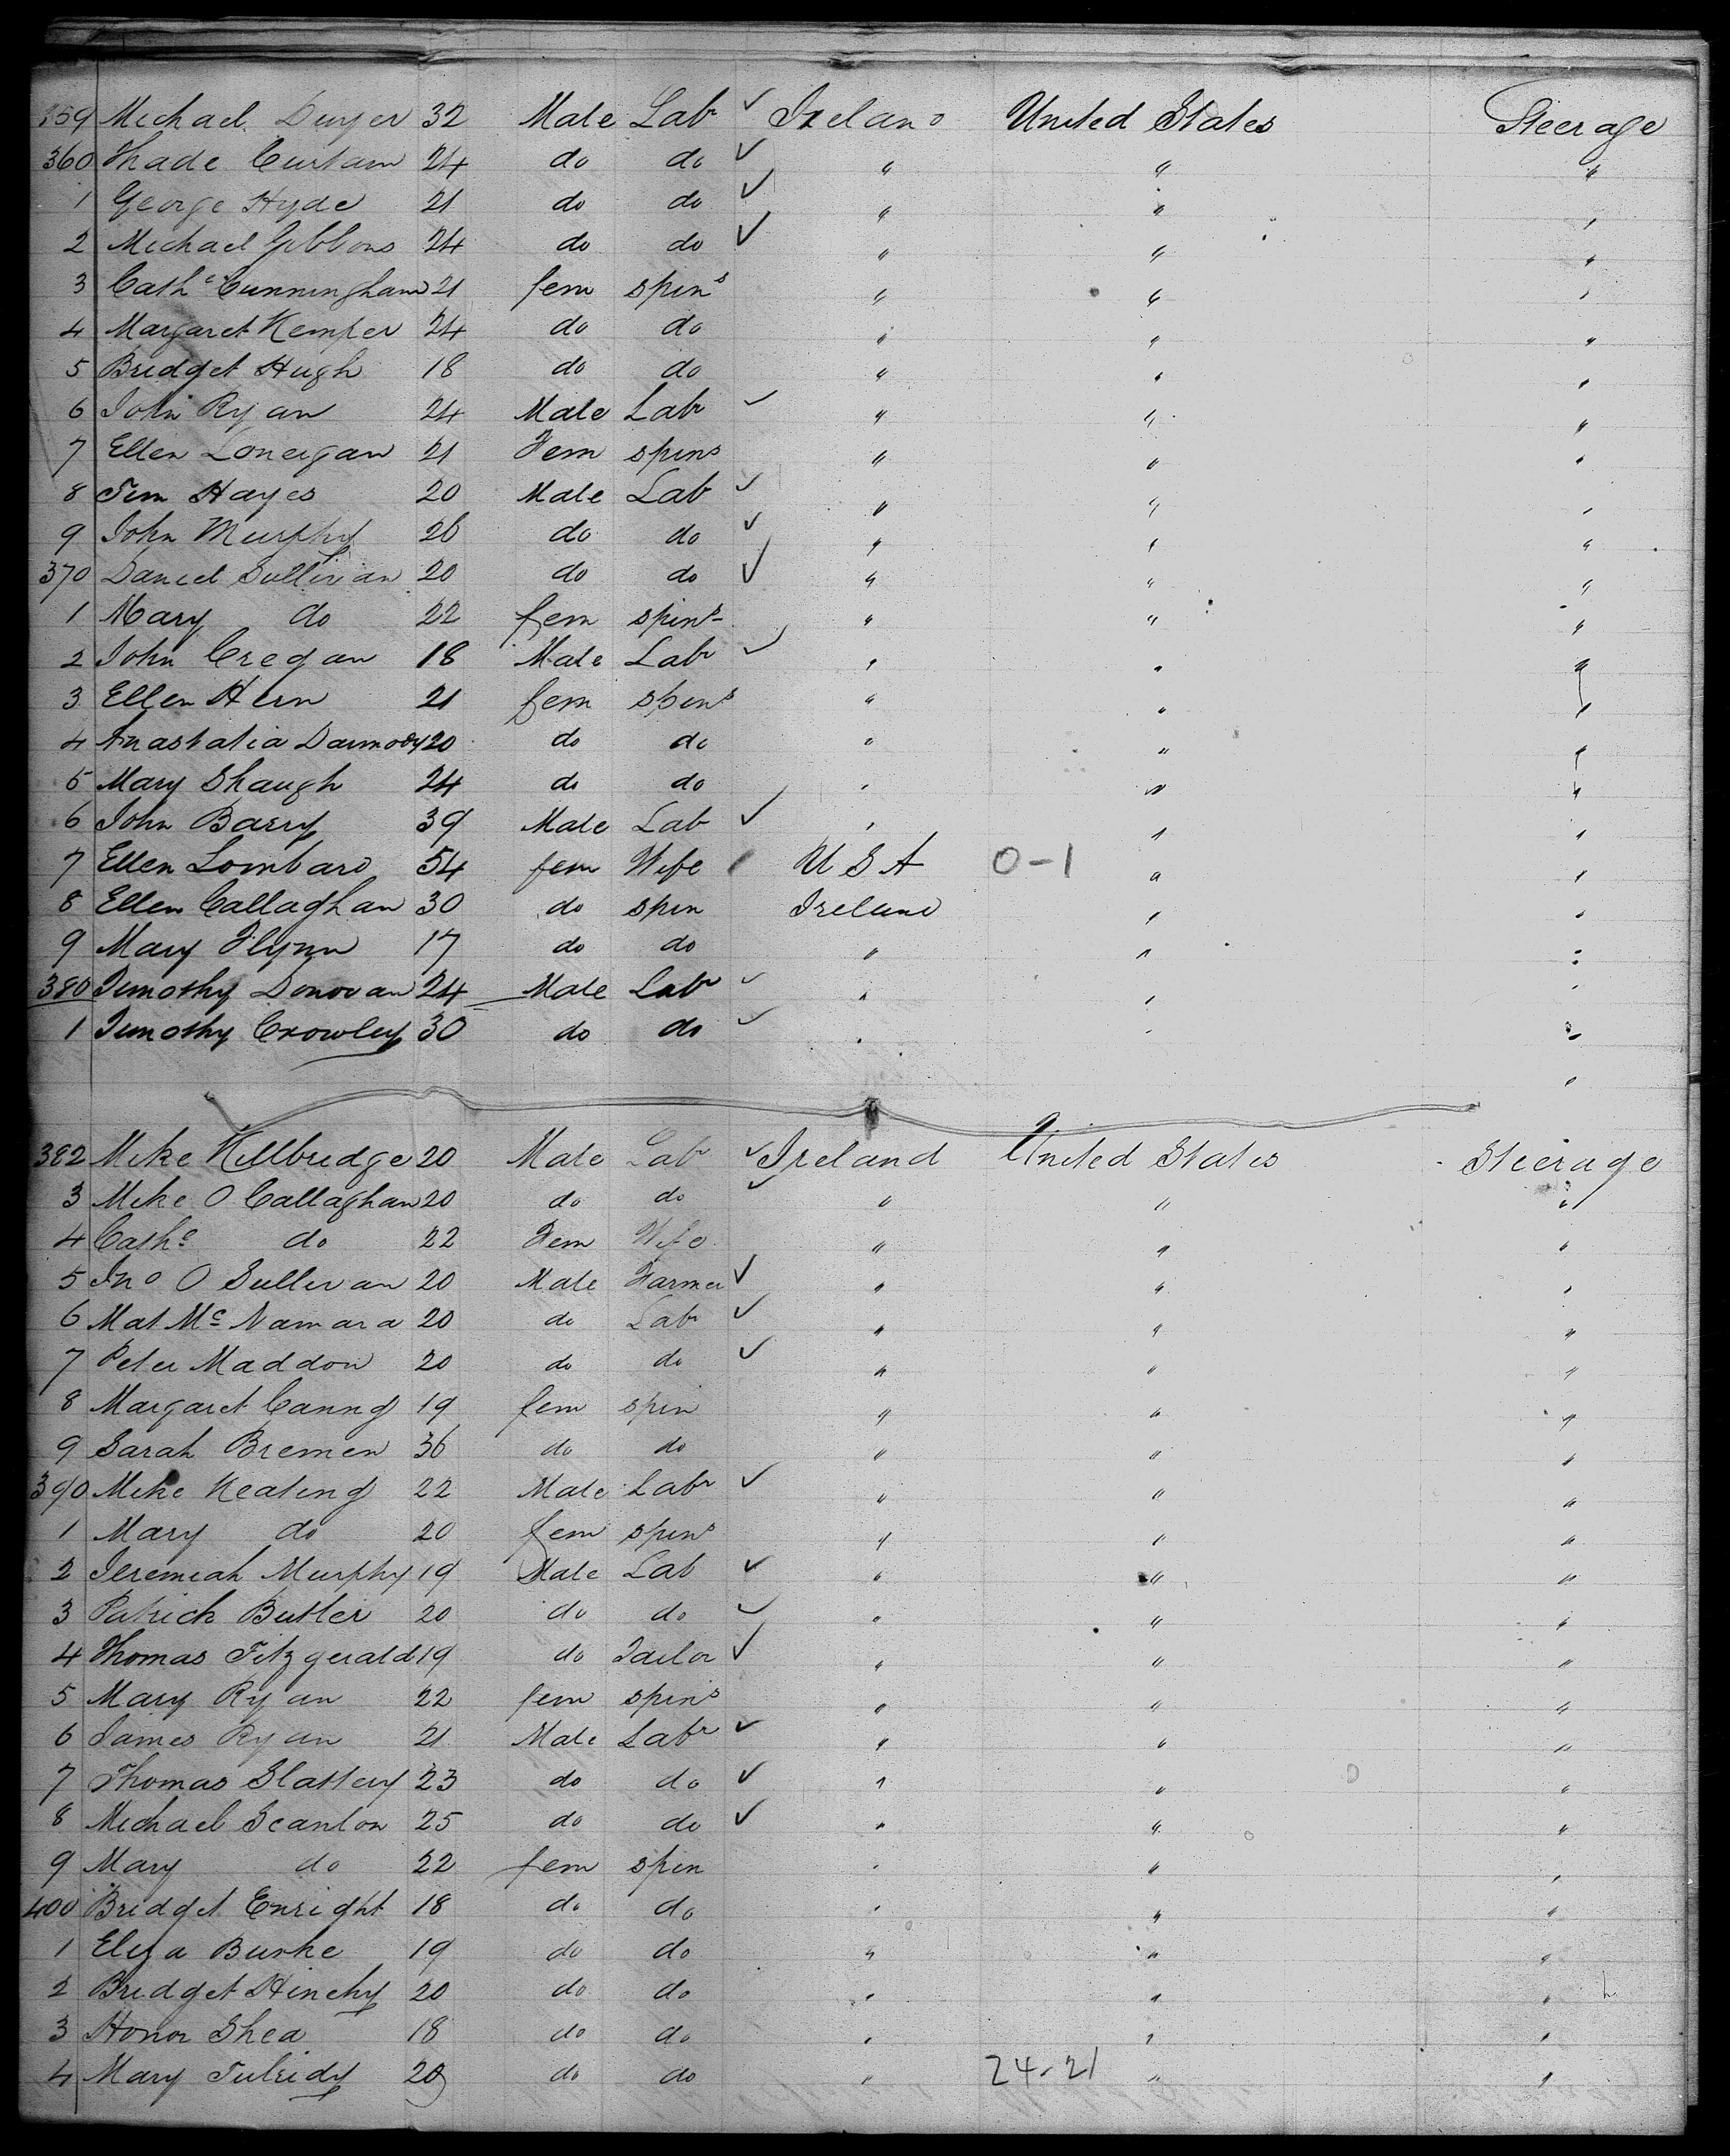 359 Michael Dwyer 32 Male Lab ✓ Ireland United States Steerage
360 Thade Curtain 24 do do ✓ " " "
1 George Hyde 21 do do ✓ " " "
2 Michael Gibbons 24 do do ✓ " " "
3 Cathe Cunningham 21 fem spins " " "
4 Margaret Kemper 24 do do " " "
5 Bridget Hugh 18 do do " " "
6 John Ryan 24 Male Labr ✓ " " "
7 Ellen Lonergan 21 Fem spins " " "
8 Tim Hayes 20 Male Lab ✓ " " "
9 John Murphy 26 do do ✓ " " "
370 Daniel Sullivan 20 do do ✓ " " "
1 Mary do 22 fem spins " " "
2 John Cregan 18 Male Labr ✓ " " "
3 Ellen Hern 21 fem spins " " "
4 Anastatia Darmody 20 do do " " "
5 Mary Shaugh 24 do do " " "
6 John Barry 39 Male Lab ✓ " " "
7 Ellen Lombard 54 fem Wife U S A 0-1 " "
8 Ellen Callaghan 30 do spin Ireland " "
9 Mary Flynn 17 do do " " "
380 Timothy Donovan 24 Male Labr ✓ " " "
1 Timothy Crowley 30 do do ✓ " " "
382 Mike Killbridge 20 Male Labr ✓ Ireland United States Steerage
3 Mike O Callaghan 20 do do ✓ " " "
4 Cathe do 22 Fem Wife " " "
5 Jno O Sullivan 20 Male Farmer ✓ " " "
6 Mat Mc Namara 20 do Labr ✓ " " "
7 Peter Maddon 20 do do ✓ " " "
8 Margaret Canny 19 fem spin " " "
9 Sarah Bremen 36 do do " " "
390 Mike Keating 22 Male Labr ✓ " " "
1 Mary do 20 fem spins " " "
2 Jeremiah Murphy 19 Male Lab ✓ " " "
3 Patrick Butler 20 do do ✓ " " "
4 Thomas Fitzgerald 19 do Tailor ✓ " " "
5 Mary Ryan 22 fem spins " " "
6 James Ryan 21 Male Labr ✓ " " "
7 Thomas Slattery 23 do do ✓ " " "
8 Michael Scanlon 25 do do ✓ " " "
9 Mary do 22 fem spin " " "
400 Bridget Enright 18 do do " " "
1 Eliza Burke 19 do do " " "
2 Bridget Hinchy 20 do do " " "
3 Honor Shea 18 do do " " "
4 Mary Tubridy 20 do do " 24-21 " "